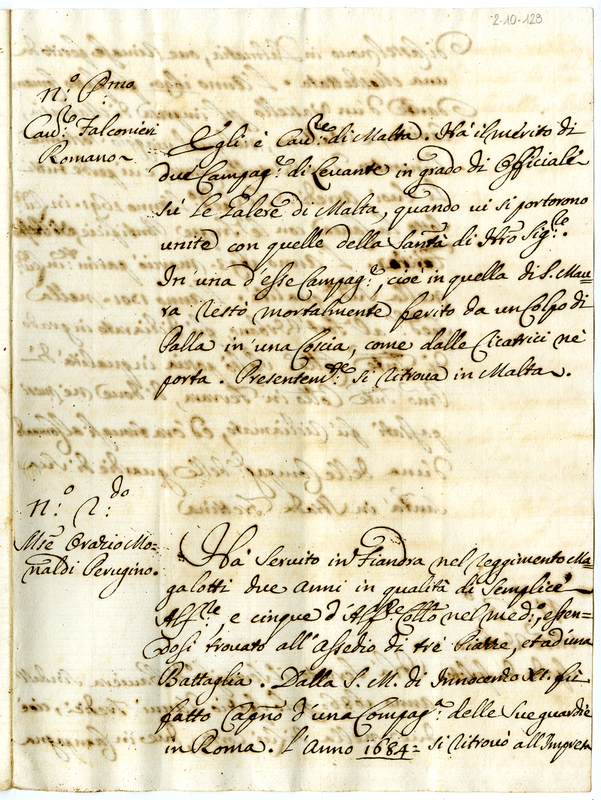 2-10-123
N.º P.mo
Cau.re Falconieri
Romano.
Egli è Cau.re di Malta. Hà il merito di
due Campag.e di Levante in grado di Officiale
sù le Galere di Malta, quando ui si portorono
unite con quelle della Santà di N̄ro Sig.re.
In una d'esse Campag.e, cioè in quella di S. Mau=
ra restò mortalmente ferito da un Colpo di
Palla in una Coscia, come dalle Cicatrici nè
porta. Presentem.te si ritroua in Malta.
N.º 2.do
Mse Orazio Mo=
naldi Perugino.
Hà seruito in Fiandra nel Reggimento Ma=
galotti due anni in qualità di Semplice
Alf.re, e cinque d'Alf.re Coll.o nel med.o, essen=
dosi trouato all'assedio di trè Piazze, et ad una
Battaglia. Dalla S. M. di Innocenzo XI. fù
fatto Cap.no d'una Compag.a delle Sue guardie
in Roma. l'Anno 1684= si ritrouò all'Impresa